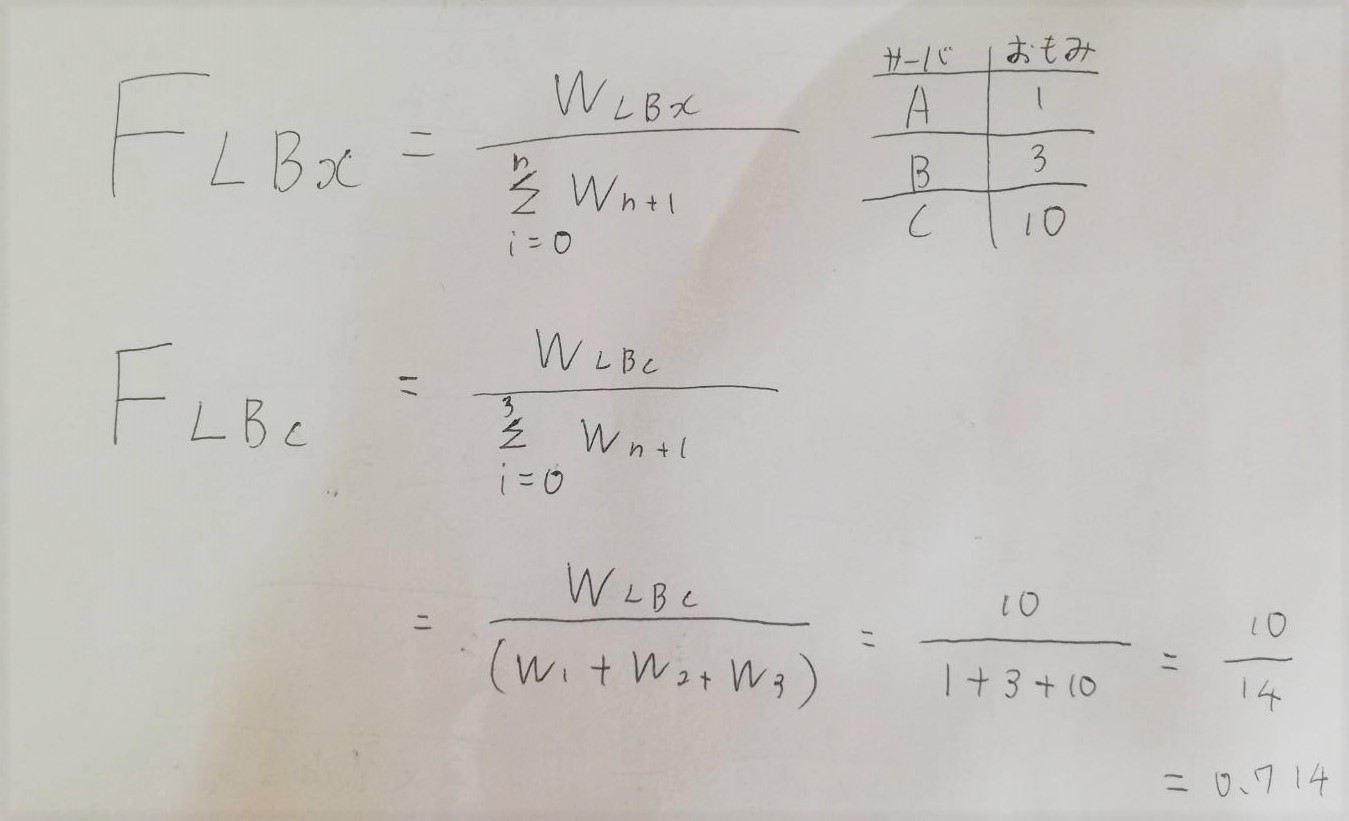 F LBx = W LBx / n Σ i=0 W n+1
サーバ おもみ
A 1
B 3
C 10
F LBc = W LBc / 3 Σ i=0 W n+1
= W LBc / (W1 + W2 + W3) = 10 / 1+3+10 = 10 / 14
= 0.714